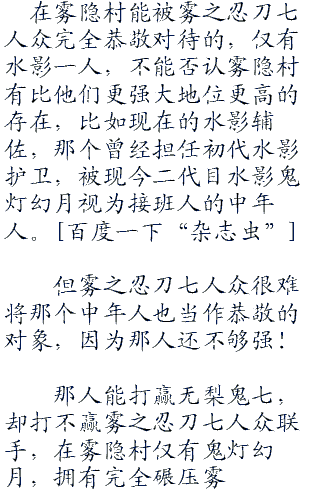 在雾隐村能被雾之忍刀七
人众完全恭敬对待的，仅有
水影一人，不能否认雾隐村
有比他们更强大地位更高的
存在，比如现在的水影辅
佐，那个曾经担任初代水影
护卫，被现今二代目水影鬼
灯幻月视为接班人的中年
人。[百度一下“杂志虫”]
但雾之忍刀七人众很难
将那个中年人也当作恭敬的
对象，因为那人还不够强！
那人能打赢无梨鬼七，
却打不赢雾之忍刀七人众联
手，在雾隐村仅有鬼灯幻
月，拥有完全碾压雾